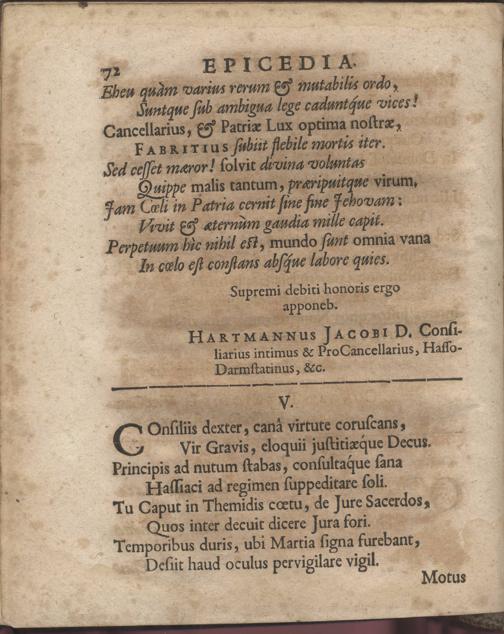 72 EPICEDIA.
Eheu quàm varius rerum & mutabilis ordo,
Suntque ſub ambigua lege caduntq́ue vices!
Cancellarius, & Patriæ Lux optima noſtræ,
FABRITIUS ſubiit flebile mortis iter.
Sed ceſſet mæror! ſolvit divina voluntas
Quippe malis tantum, præripuitque virum.
Jam Cœli in Patria cernit ſine fine Jehovam:
Vivit & æternùm gaudia mille capit.
Perpetuum hîc nihil eſt, mundo ſunt omnia vana
In cœlo eſt conſtans abſq́ue labore quies.
Supremi debiti honoris ergo
apponeb.
HARTMANNUS JACOBI D. Conſi-
liarius intimus & ProCancellarius, Haſſo-
Darmſtatinus, &c.
V.
COnſiliis dexter, canâ virtute coruſcans,
Vir Gravis, eloquii juſtitiæque Decus.
Principis ad nutum ſtabas, conſultaq́ue ſana
Haſſiaci ad regimen ſuppeditare ſoli.
Tu Caput in Themidis cœtu, de Jure Sacerdos,
Quos inter decuit dicere Jura fori.
Temporibus duris, ubi Martia ſigna furebant,
Deſiit haud oculus pervigilare vigil.
Motus